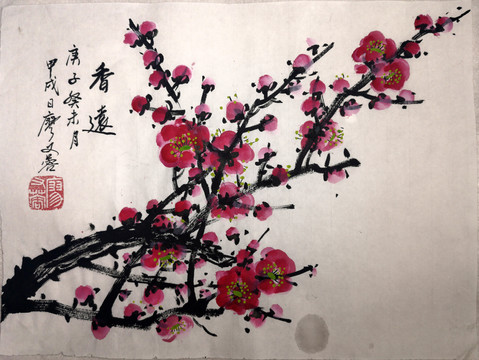 香遠
庚子癸未月
甲戌日廖文蓉